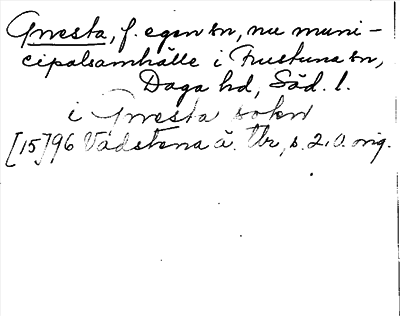 Gnesta, f. egen sn, nu muni-
cipalsamhälle i Frustuna sn,
Daga hd, Söd. l.
i Gnesta sokn
[15]96 Vadstena ä. Tbr, s. 2, O. orig.